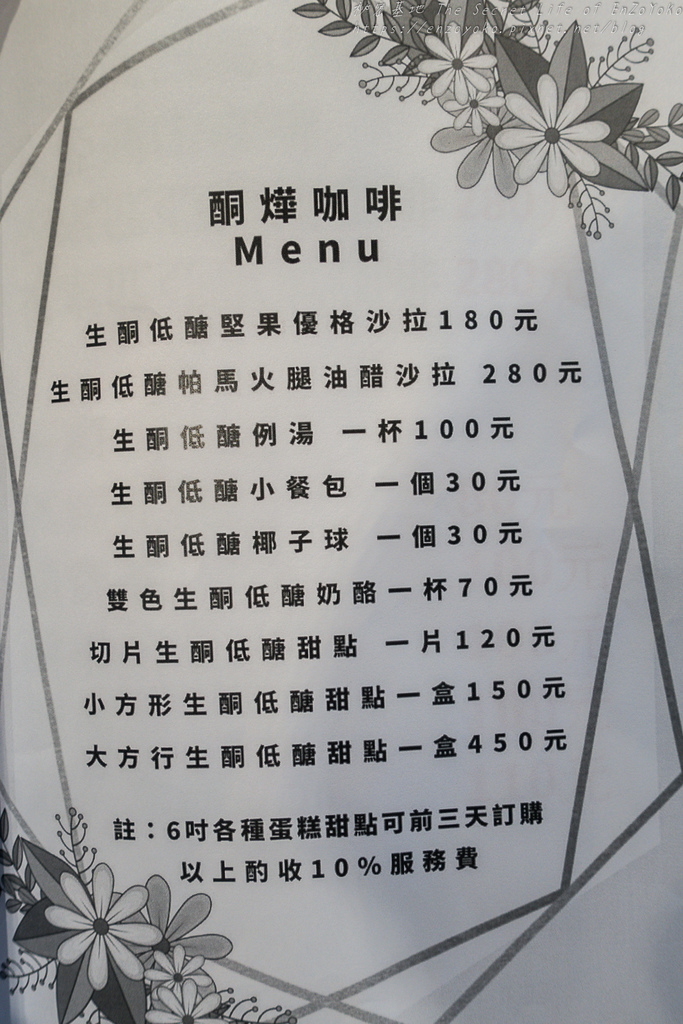 The Secret Life of EnZoYoko
https://enzoyoko.pixnet.net/blog
酮燁咖啡
Menu
生酮低醣堅果優格沙拉180元
生酮低醣帕馬火腿油醋沙拉 280元
生酮低醣例湯 一杯100元
生酮低醣小餐包 一個30元
生酮低醣椰子球 一個30元
雙色生酮低醣奶酪一杯70元
切片生酮低醣甜點 一片120元
小方形生酮低醣甜點一盒150元
大方行生酮低醣甜點一盒450元
註：6吋各種蛋糕甜點可前三天訂購
以上酌收10%服務費